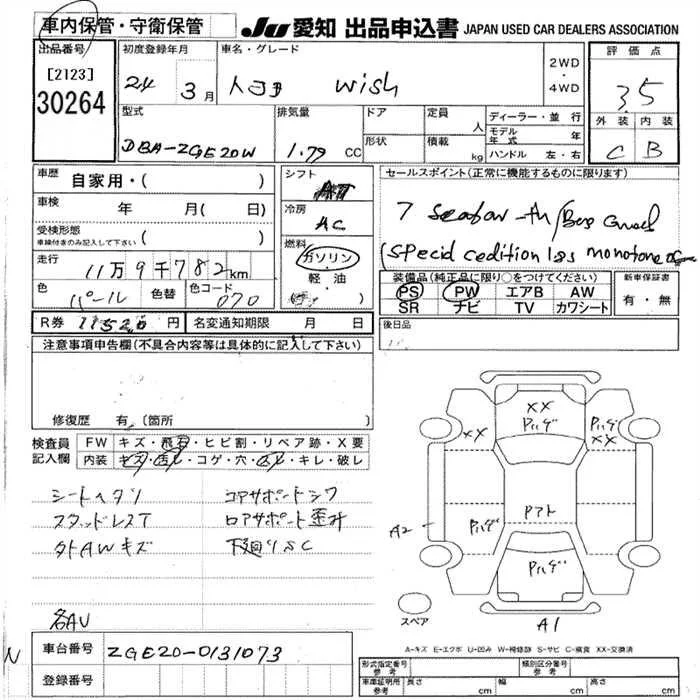 車内保管・守衛保管
JU 愛知 出品申込書 JAPAN USED CAR DEALERS ASSOCIATION
出品番号
[2123]
30264
初度登録年月
24年 3月
車名・グレード
トヨタ wish
2WD
・
4WD
評価点
3.5
外装 内装
C B
型式
DBA-ZGE20W
排気量
1.79 CC
ドア
形状
定員 人
積載 kg
ディーラー・並行
モデル年式 年
ハンドル 左・右
車歴 自家用・( )
車検 年 月( 日)
受検形態
車検付きのみ記入して下さい ( )
走行 11万9千782km
色 パール 色替 色コード 070
シフト
冷房
AC
燃料
ガソリン
軽・油
セールスポイント(正常に機能するものに限ります)
(Special edition
monotone
装備品(純正品に限り○をつけてください)
PS PW エアB AW
SR ナビ TV カワシート
新車保証書
有・無
後日品
R券 11520円 名変通知期限 月 日
注意事項申告欄(不具合内容等は具体的に記入して下さい)
修復歴 有(箇所
検査員記入欄
FW キズ・飛石・ヒビ割・リペア跡・X要
内装 キズ・汚レ・コゲ・穴・凹レ・キレ・破レ
シートヘタリ コアサポートシワ
スタッドレスT ロアサポート歪
外AWキズ 下廻りSC
各AU
XX
Pハゲ
XX
Pハゲ
XX
Pハゲ
Pアト
Pハゲ
A2
A1
スペア
A-キズ E-エクボ U-凹み W-補修跡 S-サビ C-腐食 XX-交換済
N
車台番号 ZGE20-0131073
登録番号
形式指定番号 参考
類別区分番号 参考
車庫証明用 参考 長さ cm 幅 cm 高さ cm